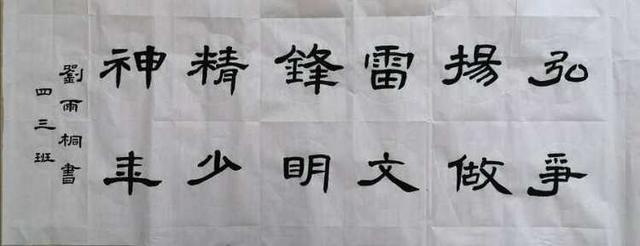 弘揚雷鋒精神
爭做文明少年
劉雨桐書
四三班